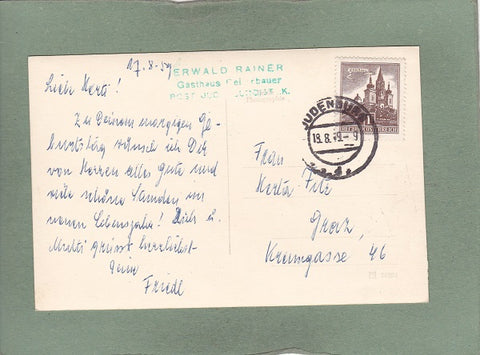 17.8.59
ERWALD RAINER
Gasthaus
POST
Photographie
Liebe Herta!
Zu Deinem morgigen Ge-
burtstag wünsch ich Dir
von Herzen alles Gute und
viele schöne Stunden im
neuen Lebensjahr! Dich u.
Mutti grüsst herzlichst
Dein
Friedl
JUDENBURG
18.8.59.-9
REPUBLIK ÖSTERREICH
Frau
Herta
Graz
Kreuzgasse 46